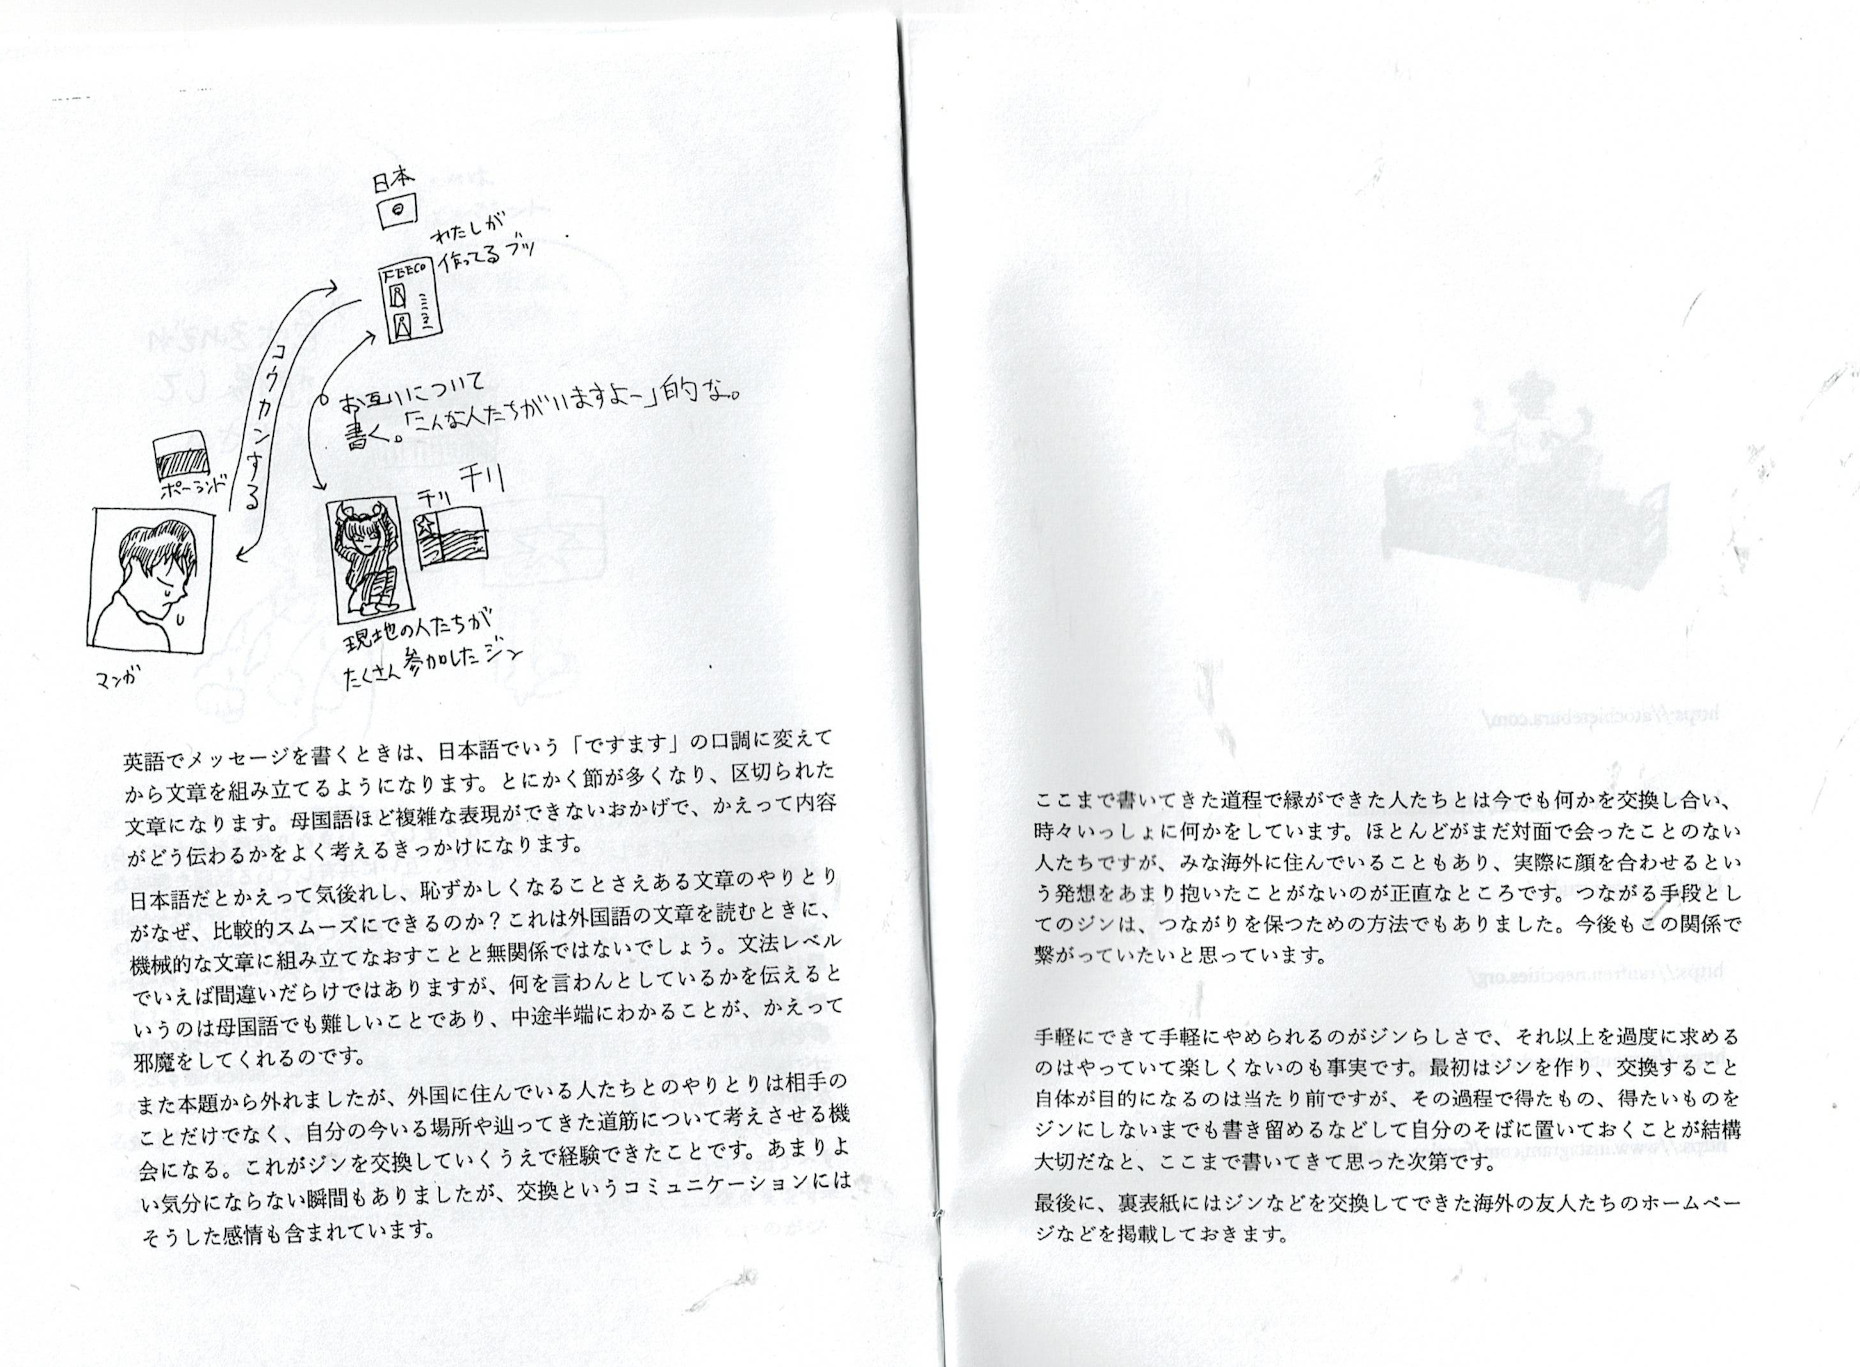 日本
わたしが
作ってるブツ
FEECO
コウカンする
お互いについて
書く。「こんな人たちがいますよー」的な。
ポーランド
チリ
チリ
マンガ
現地の人たちが
たくさん参加したジン
英語でメッセージを書くときは、日本語でいう「ですます」の口調に変えて
から文章を組み立てるようになります。とにかく節が多くなり、区切られた
文章になります。母国語ほど複雑な表現ができないおかげで、かえって内容
がどう伝わるかをよく考えるきっかけになります。
日本語だとかえって気後れし、恥ずかしくなることさえある文章のやりとり
がなぜ、比較的スムーズにできるのか？これは外国語の文章を読むときに、
機械的な文章に組み立てなおすことと無関係ではないでしょう。文法レベル
でいえば間違いだらけではありますが、何を言わんとしているかを伝えると
いうのは母国語でも難しいことであり、中途半端にわかることが、かえって
邪魔をしてくれるのです。
また本題から外れましたが、外国に住んでいる人たちとのやりとりは相手の
ことだけでなく、自分の今いる場所や辿ってきた道筋について考えさせる機
会になる。これがジンを交換していくうえで経験できたことです。あまりよ
い気分にならない瞬間もありましたが、交換というコミュニケーションには
そうした感情も含まれています。
ここまで書いてきた道程で縁ができた人たちとは今でも何かを交換し合い、
時々いっしょに何かをしています。ほとんどがまだ対面で会ったことのない
人たちですが、みな海外に住んでいることもあり、実際に顔を合わせるとい
う発想をあまり抱いたことがないのが正直なところです。つながる手段とし
てのジンは、つながりを保つための方法でもありました。今後もこの関係で
繋がっていたいと思っています。
手軽にできて手軽にやめられるのがジンらしさで、それ以上を過度に求める
のはやっていて楽しくないのも事実です。最初はジンを作り、交換すること
自体が目的になるのは当たり前ですが、その過程で得たもの、得たいものを
ジンにしないまでも書き留めるなどして自分のそばに置いておくことが結構
大切だなと、ここまで書いてきて思った次第です。
最後に、裏表紙にはジンなどを交換してできた海外の友人たちのホームペー
ジなどを掲載しておきます。